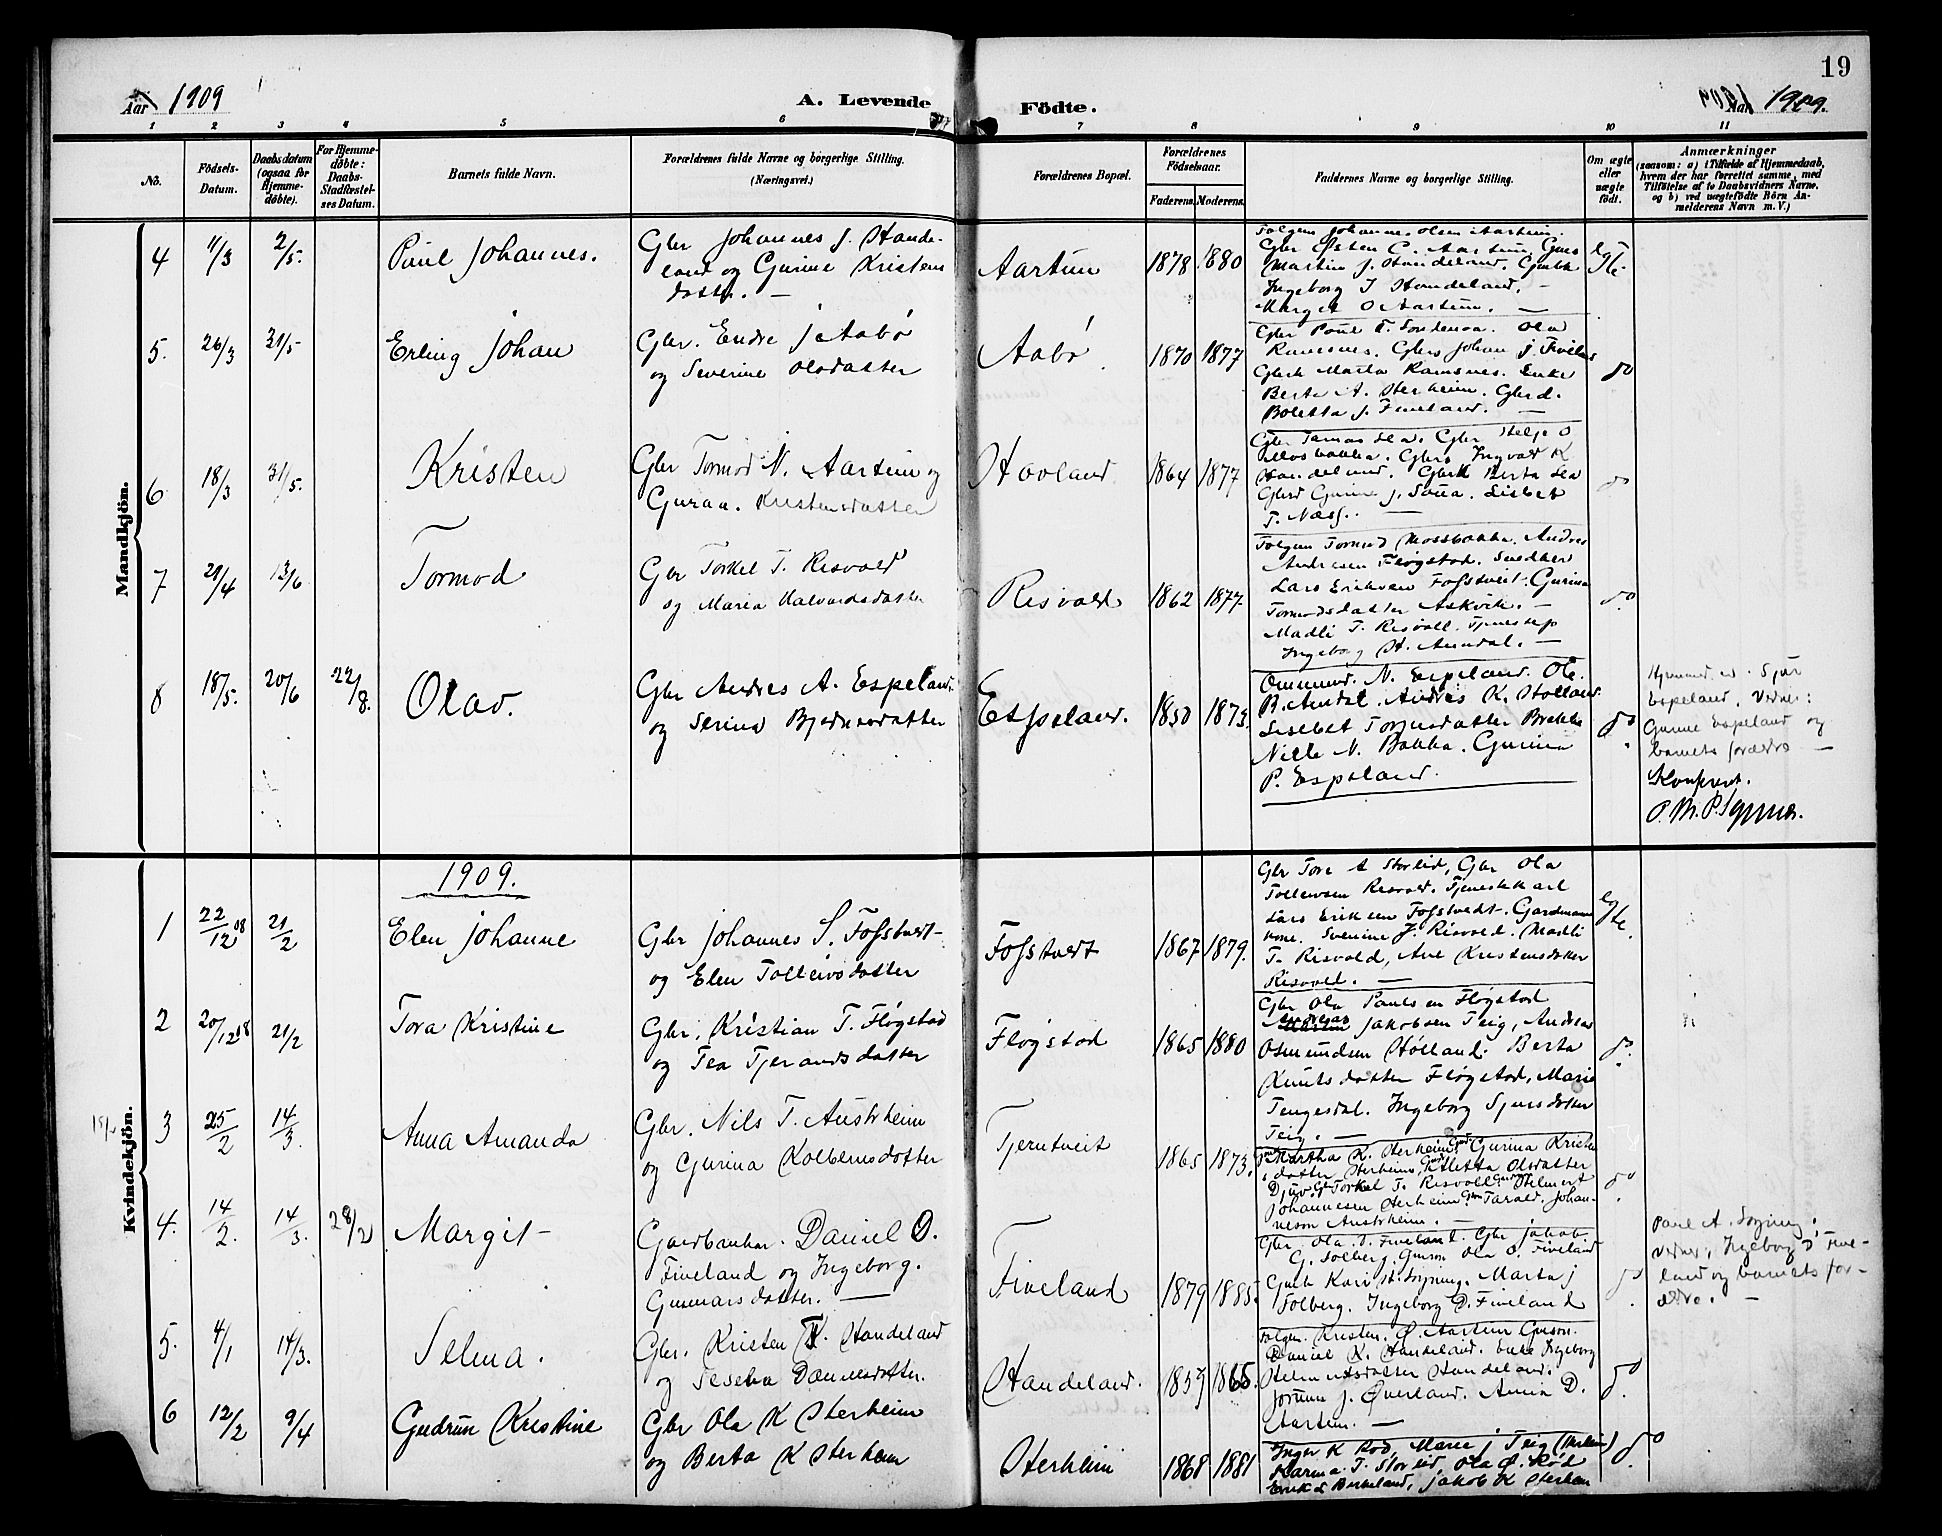 19
Aar 1909
A. Levende Födte.
Aar 1909.
1 2 3 4 5 6 7 8 9 10 11
No.
Födsels-Datum.
Daabsdatum (ogsaa for Hjemme-döbte).
For Hjemme-döbte: Daabs-Stadfæstel-ses Datum.
Barnets fulde Navn.
Forældrenes fulde Navne og borgerlige Stilling.
(Næringsvei.)
Forældrenes Bopæl.
Forældrenes Födselsaar.
Faderens. Moderens.
Faddernes Navne og borgerlige Stilling.
Om ægte eller uægte födt.
Anmærkninger
(saasom: a) i Tilfælde af Hjemmedaab,
hvem der har forrettet samme, med
Tilföielse af to Daabsvidners Navne,
og b) ved uægtefödte Börn An-
melderens Navn m. V.)
Mandkjön.
4 11/3 2/5.
Paul Johannes.
Gbr Johannes J. Hande-
land og Gurine Kristens
datter. —
Aartun
1878 1880
Gbr Østen C. Aartun,
Martin J. Handeland.
Ingeborg J Handeland. —
Margit O Aartun. —
Ægte
5. 26/3 31/5
Erling Johan
Gbr. Endre J Aabø
og Severine Olsdatter
Aabø
1870 1877
Gbr Paul T. Sondenaa. Ola
Ramsnes. Johan J. Fiveland
Marta Ramsnes. Enke
Berta A. Sterheim.
Boletta J. Fiveland. —
do
6 18/3 31/5.
Kristen
Gbr Tormod N. Aartun og
Guraa. Kristensdatter
Hovland
1864 1877
Handeland. Berta Lea
Gurine J. Lisbet
T. Næss. —
do
7 21/4 13/6
Tormod
Gbr Torkel T. Risvold
og Maria Halvardsdatter
Risvold
1862 1877
Tormod Mossbakka. Andres
Andresen Fløgstad. Snedker
Lars Eriksen Fosstveit. Gurina
Tormodsdatter Askvik. —
Madli T. Risvoll.
Ingeborg H. Aundal. —
do
8 18/5. 20/6 22/8.
Olav.
Gbr Andres A. Espeland.
og Serina Bjednesdatter
Espeland.
1850 1873
Ommund. N. Espeland. Ole.
B. Aundal. Andres K. Hølland
Lisebet Tormsdatter Brekke
Nille N. Bakka. Gurina
P. Espeland.
do
Sjur
Espeland. Vidner:
Gurine Espeland og
barnets forældre —
Konfereret.
Kvindekjön.
1909.
1 22/12 08 21/2
Elen Johanne
Gbr Johannes S. Fosstvedt
og Elen Tolleivsdatter
Fosstvedt
1867 1879.
Gbr Tore A Storlid, Gbr Ola
Tolleivsen Risvold. Tjenestekarl
Lars Eriksen Fosstvedt. Gardmanns
kone. Severine J. Risvold. Madli
T. Risvold, Ane Kristensdatter
Risvold. —
Ægte.
2 20/12 08 21/2
Tora Kristine
Gbr. Kristian T. Fløgstad
og Tea Tjerandsdatter
Fløgstad
1865 1880
Gbr Ola Paulsen Fløgstad
Andreas Jakobsen Teig, Andreas
Osmundsen Hølland. Berta
Knutsdatter Fløgstad, Marie
Tengesdal. Ingeborg Sjursdatter
Teig. —
do.
3 25/2 14/3.
Anna Amanda
Gbr. Nils T. Austrheim
og Gurina Kolbensdatter
Tjentveit
1865 1873.
Martha K. Sterheim Gurina Kristen
datter Sterheim, Aletta Olsdatter
Djuv. Torkel T. Risvoll Helmert
Johannesen Sterheim Tarald. Johan-
neson Austrheim. —
do
4. 14/2. 14/3. 28/2
Margit
Gardbrukar. Daniel O.
Fiveland og Ingeborg.
Gunnarsdatter. —
Fiveland
1879 1885.
Gbr. Ola D. Fiveland. Gbr Jakob
G. Solberg. Ola O. Fiveland
Kari Sogning. Marta J
Solberg. Ingeborg D. Fiveland
do
Paul A. Sogning.
Vidner: Ingeborg D Five-
land og barnets for-
ældre. —
5. 4/1 14/3.
Selma.
Gbr. Kristen K. Handeland
og Danielsdatter.
Handeland.
1859 1865.
Kristen. Ø. Aartun
Daniel K. Handeland. Enke Ingeborg
Helmertsdatter Handeland.
Jorunn J. Øverland. Anna D.
Aartun. —
do
6 12/2 9/4
Gudrun Kristine
Gbr Ola K Sterheim
og Berta K Sterheim
Sterheim
1868 1881
Inger K Rød, Marie J Teig
Karina T. Storlid Ola Ø. Rød
Erik L Birkeland, Jakob K Sterheim
do.